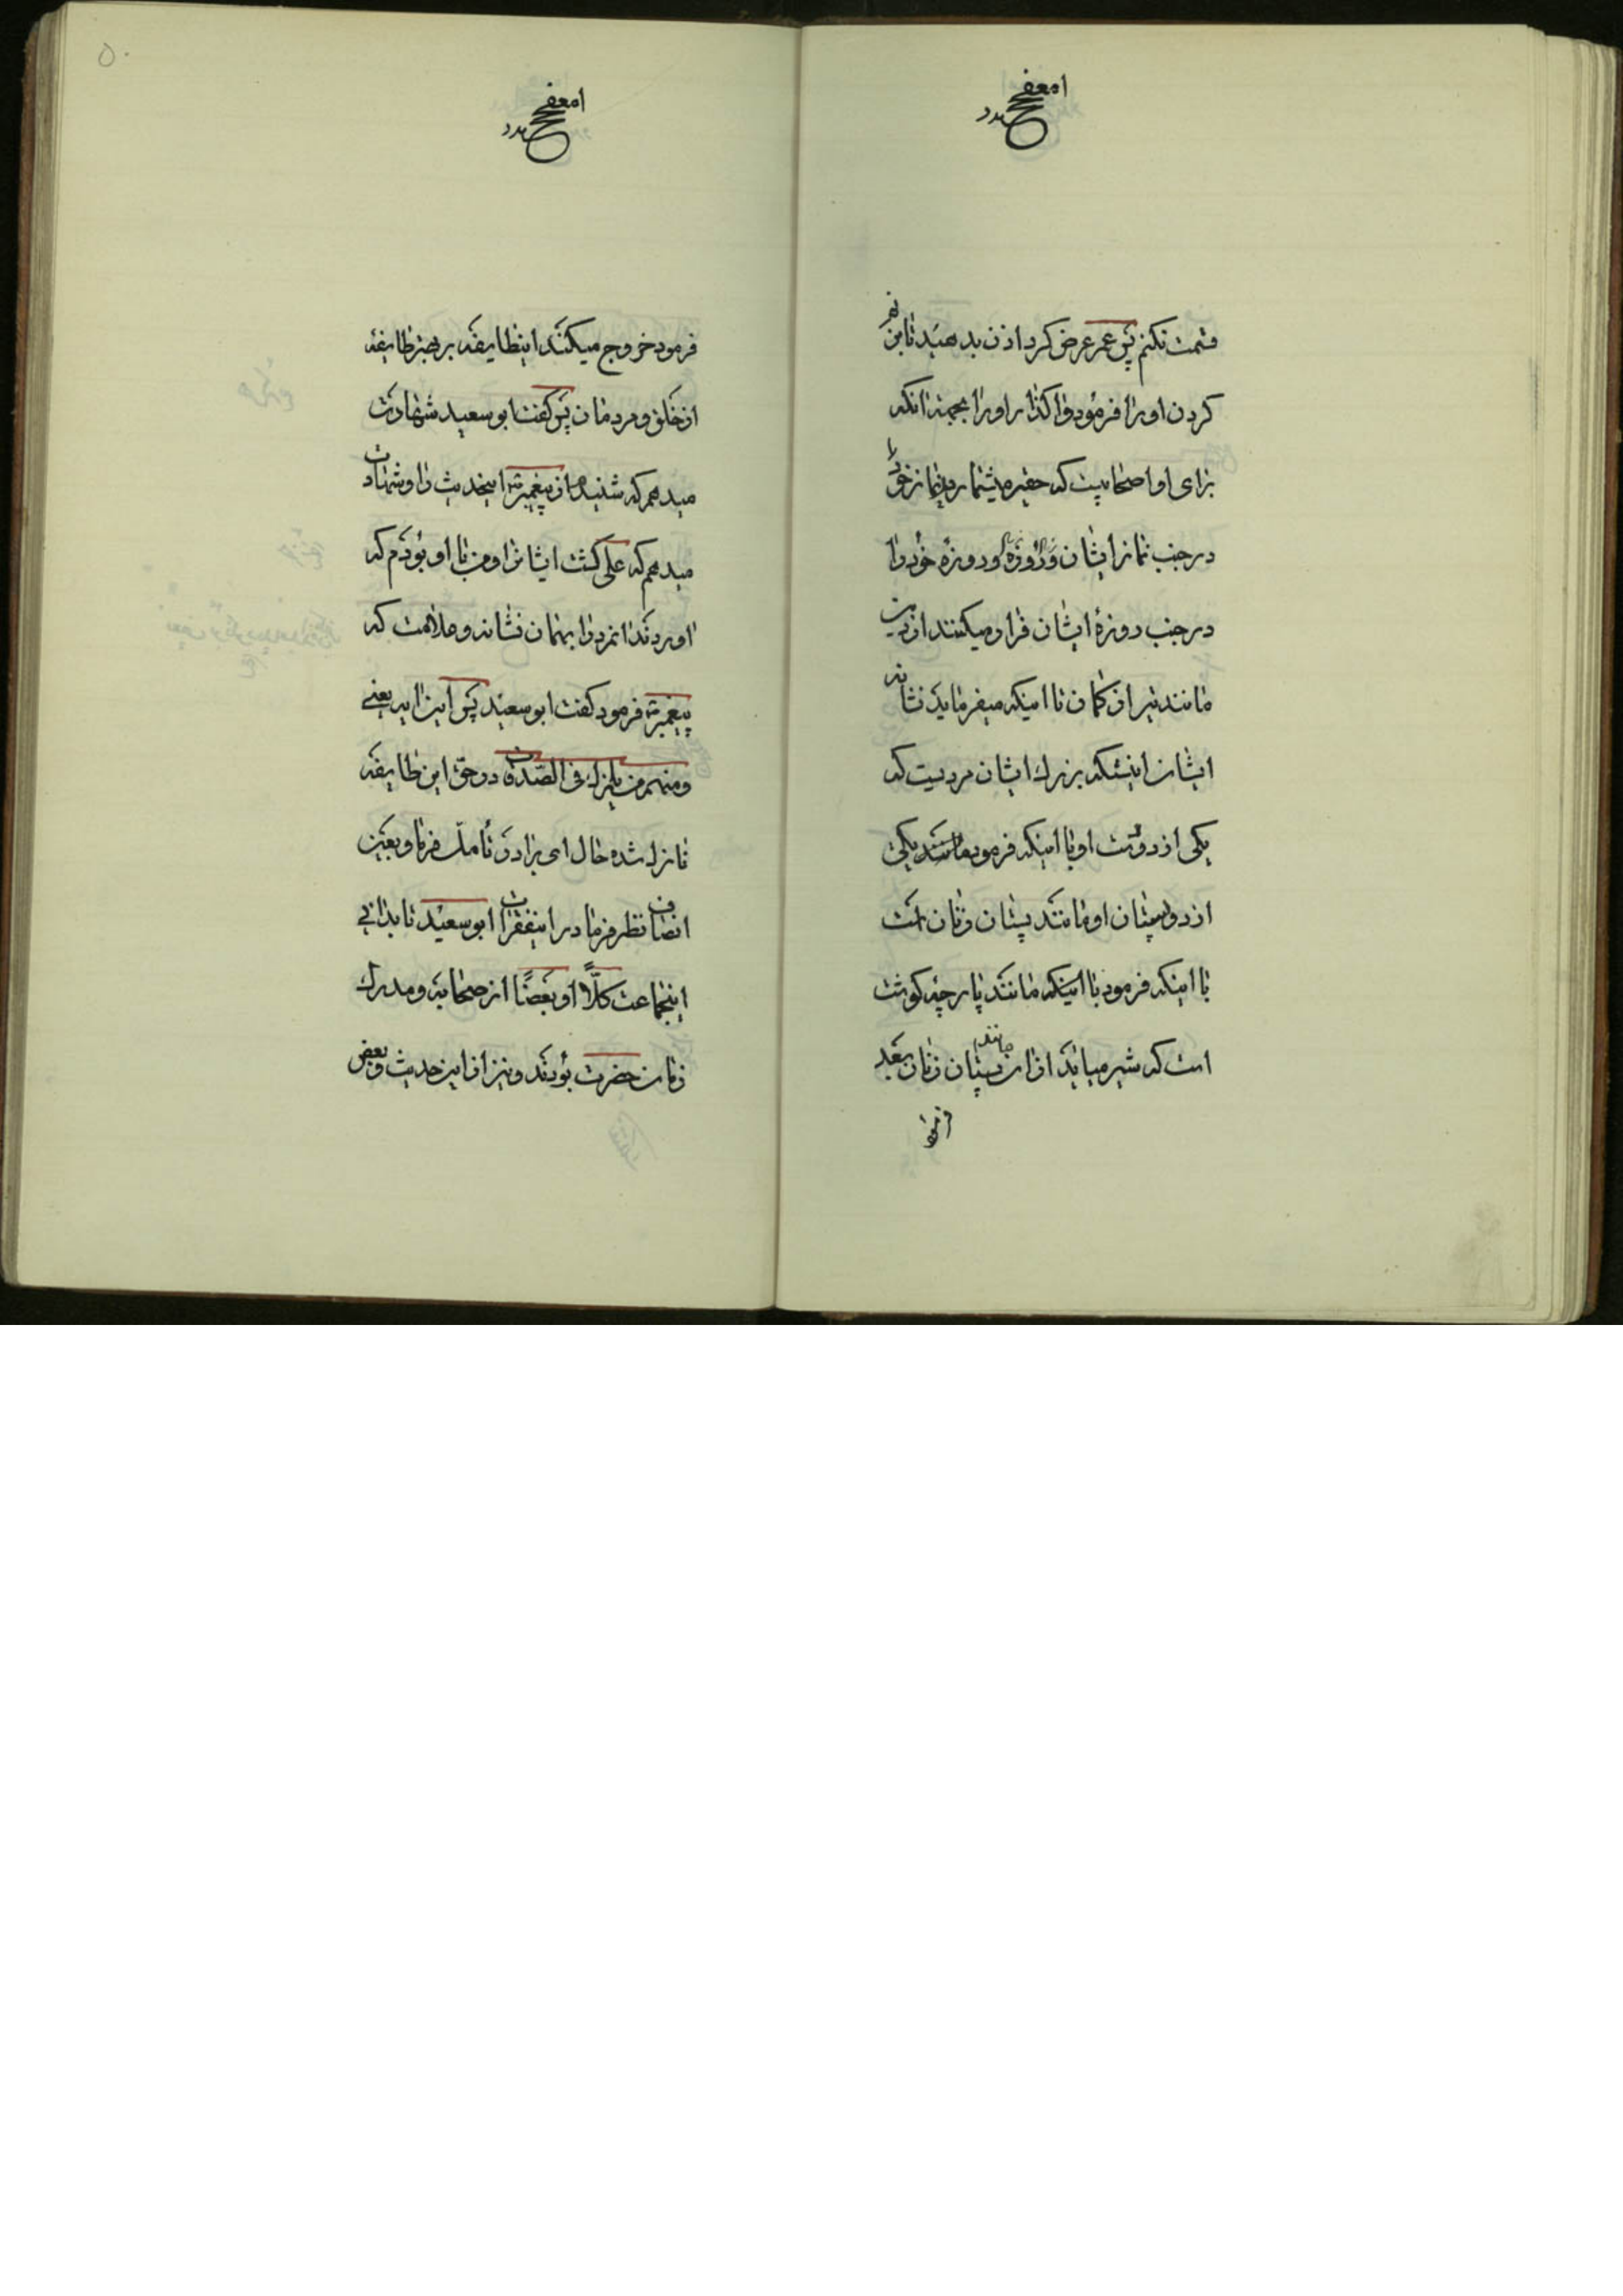 قسمت نکنم پس عمر عرض کرد اذن بدهید تا بزنم
کردن او را فرمود واگذار او را بجهة انکه
برای او اصحابیست که حقیر میشمارید نماز خود را
در جنب نماز ایشان و روزه خود را
در جنب روزهٔ ایشان فرار میکنند از دین
مانند تیر از کمان تا اینکه میفرماید نشانه
ایشان اینستکه بزرك ایشان مردیست که
یکی از دو دست او یا اینکه فرمود مانند یکی
از دو پستان او مانند پستان زنان است
یا اینکه فرمود یا اینکه مانند پارچه کوشت
است که شیر میاید از ان پستان زنان بعد
۵۰
فرمود خروج میکنند اینطایفه بر بهتر طایفه
از خلق و مردمان پس کفت ابو سعید شهادت
میدهم که شنیدم از پیغمبر اینحدیث را و شهادت
میدهم که علی کشت ایشانرا و من با او بودم که
اوردند انمرد را بهمان نشانه و علامت که
پیغمبر فرمود کفت ابو سعید پس این ایه یعنی
ومنهم من یلمزك فی الصدقات در حق این طایفه
نازل شده حال ای برادر تأمل فرما و بعین
انصاف نظر فرما در اینفقرات ابو سعید تا بدانی
اینجماعت کلاً او بعضًا از صحابه و مدرك
زمان حضرت بودند و نیز از این حدیث و بعض